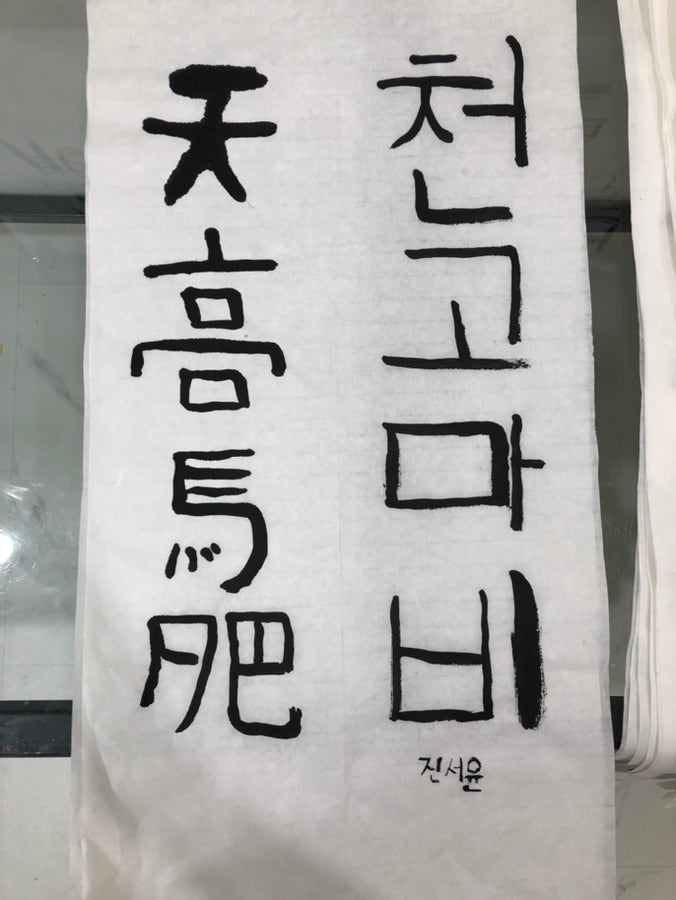 천고마비
天高馬肥
진서윤